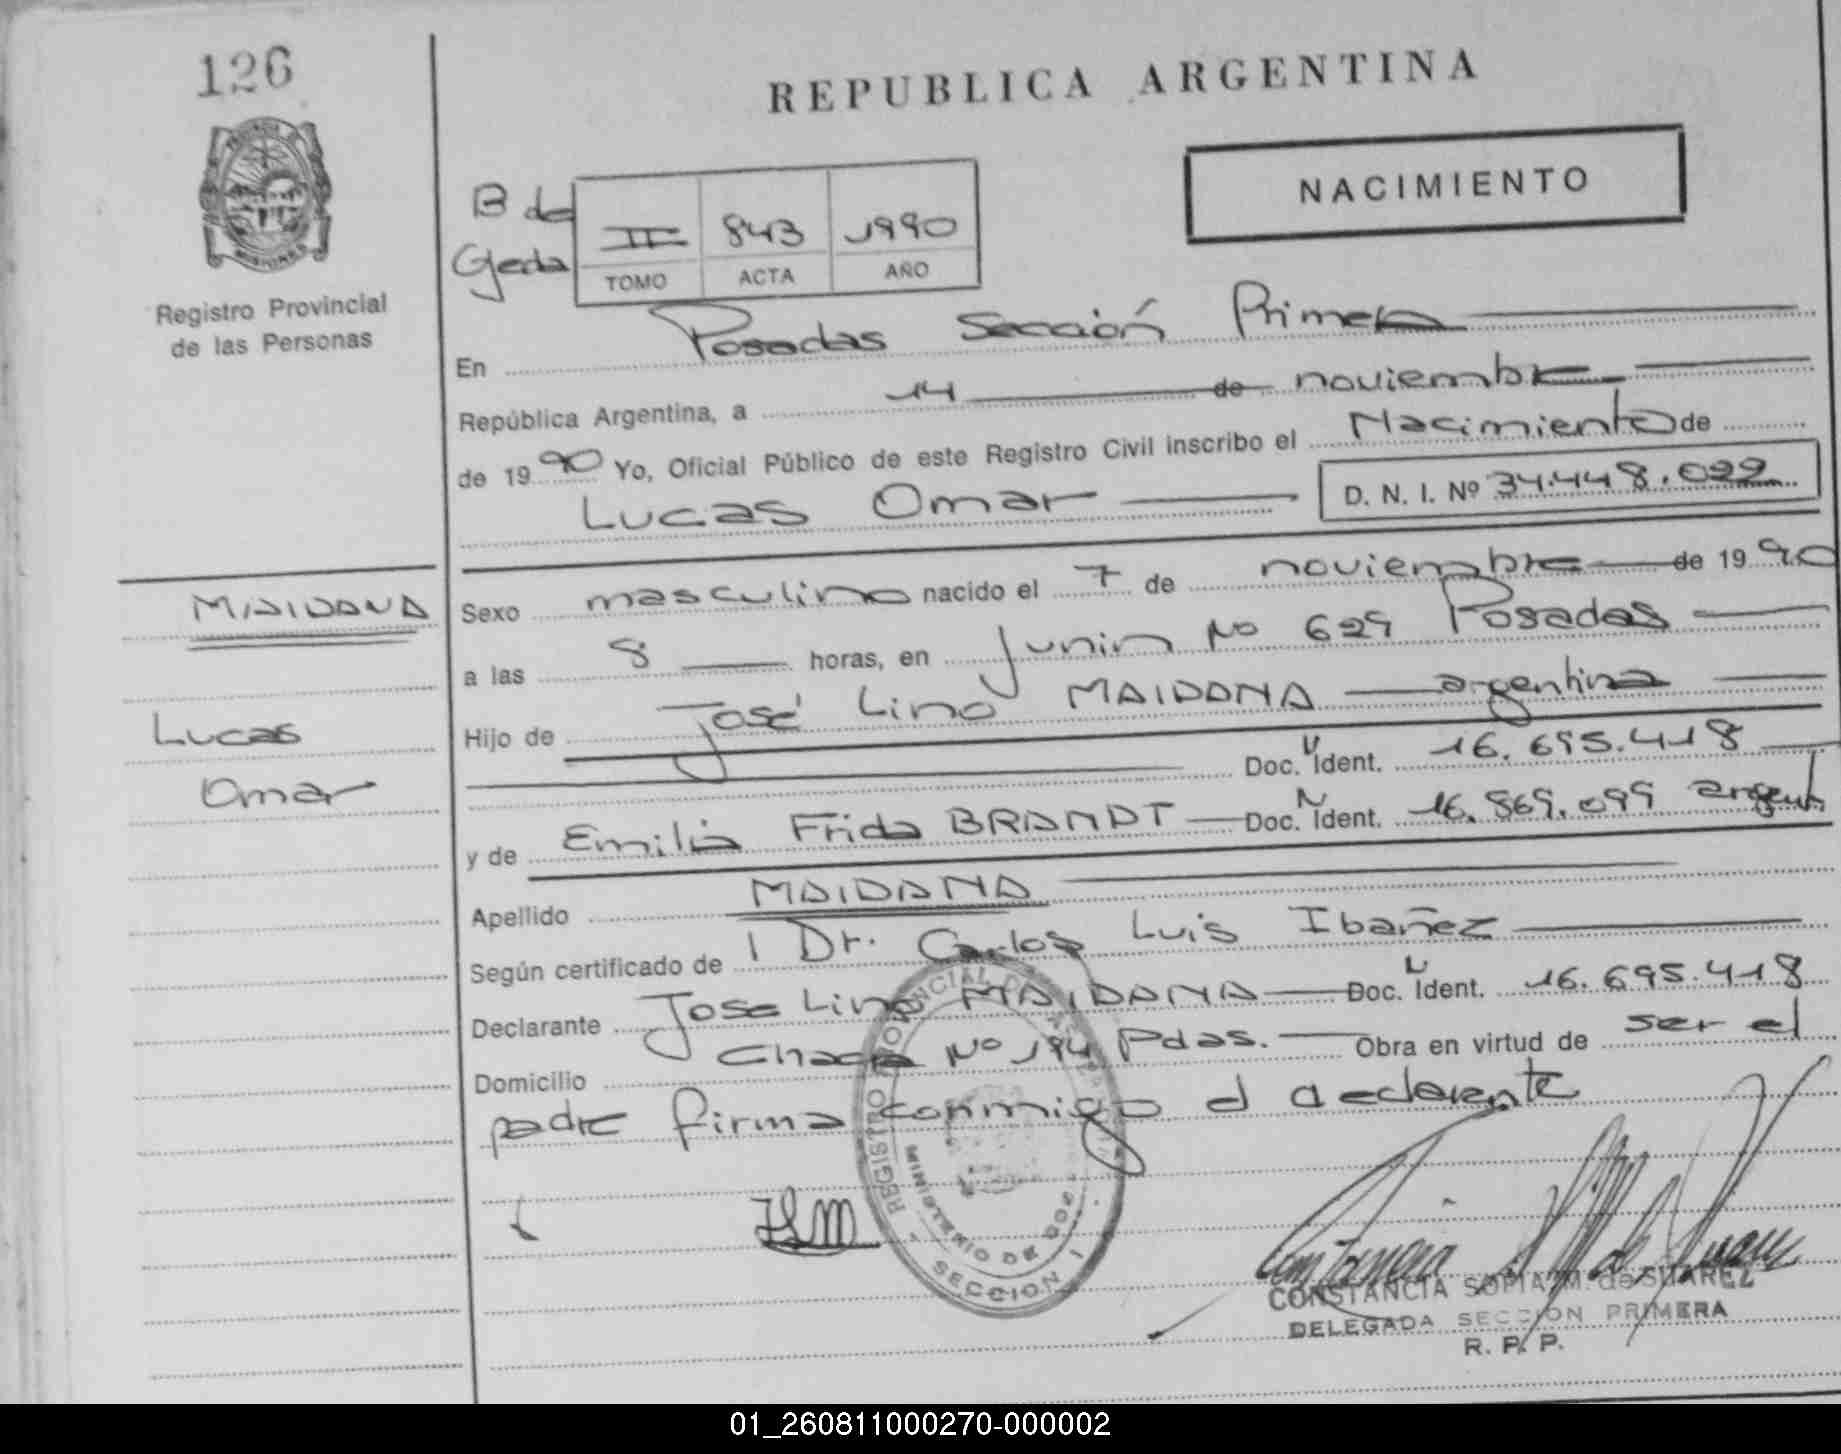 126
REPUBLICA ARGENTINA
NACIMIENTO
PROVINCIA
MISIONES
Registro Provincial
de las Personas
B de
Gjeda
II 843 1990
TOMO ACTA AÑO
En Posadas Sección Primera
República Argentina, a 14 de noviembre
de 1990 Yo, Oficial Público de este Registro Civil inscribo el Nacimiento de
Lucas Omar D. N. I. Nº 34.448.022
MAIDANA
Lucas
Omar
Sexo masculino nacido el 7 de noviembre de 1990
a las 8 horas, en Junin Nº 629 Posadas
Hijo de José Lino MAIDANA argentina
Doc. Ident. 16.695.418
y de Emilia Frida BRANDT Doc. N Ident. 16.869.099 argent
Apellido MAIDANA
Según certificado de Dr. Carlos Luis Ibañez
Declarante Jose Lino MAIDANA Doc. Ident. 16.695.418
Domicilio Chacra Nº 194 Pdas. Obra en virtud de ser el
padre firma conmigo el declarante
REGISTRO PROVINCIAL DE LAS PERSONAS
MINISTERIO DE GOB
SECCION I
CONSTANCIA SOFIA M. de SUAREZ
DELEGADA SECCION PRIMERA
R. P. P.
01_260811000270-000002